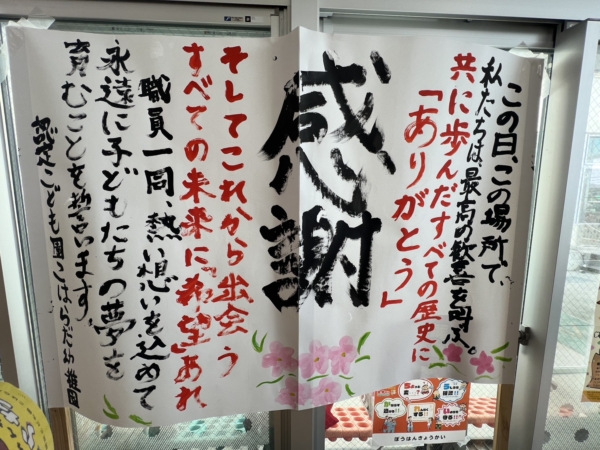 この日、この場所で、
私たちは、最高の歓喜を叫ぶ。
共に歩んだすべての歴史に
「ありがとう」
感謝
そしてこれから出会う
すべての未来に「希望」あれ
職員一同、熱い想いを込めて
永遠に子どもたちの夢を
育むことを誓います。
認定こども園こはらだ幼稚園
ぼうはんきょうかい